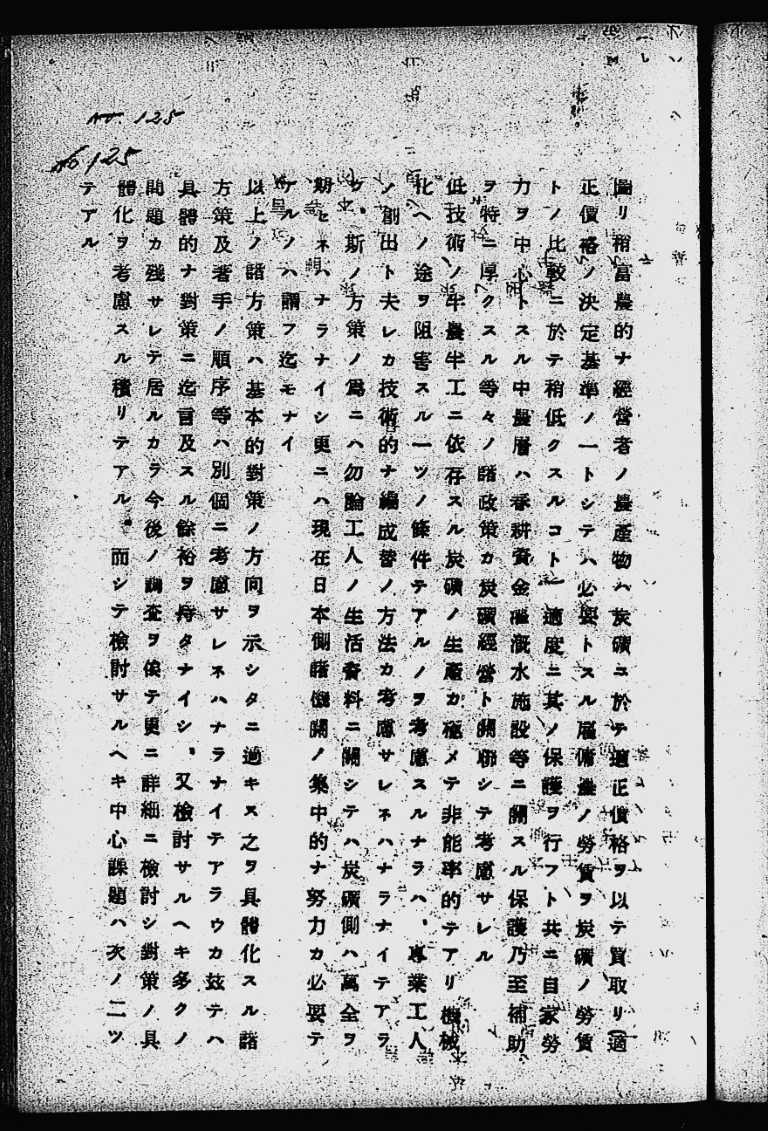 No 125
No 125
圖リ稍富農的ナ經營者ノ農產物ハ炭礦ニ於テ適正價格ヲ以テ買取リ(適
正價格ノ決定基準ノ一トシテハ必要トスル雇傭農ノ勞賃ヲ炭礦ノ勞賃
トノ比較ニ於テ稍低クスルコト)適度ニ其ノ保護ヲ行フト共ニ自家勞
力ヲ中心トスル中農層ハ春耕資金灌漑水施設等ニ關スル保護乃至補助
ヲ特ニ厚クスル等々ノ諸政策カ炭礦經營ト關聯シテ考慮サレル
低技術ノ半農半工ニ依存スル炭礦ノ生產カ極メテ非能率的テアリ機械
化ヘノ途ヲ阻害スル一ツノ條件テアルノヲ考慮スルナラハ、專業工人
ノ創出ト夫レカ技術的ナ編成替ノ方法カ考慮サレネハナラナイテアラ
ウ、斯ノ方策ノ爲ニハ勿論工人ノ生活資料ニ關シテハ炭礦側ハ萬全ヲ
期セネハナラナイシ更ニハ現在日本側諸機關ノ集中的ナ努力カ必要テ
アルノハ謂フ迄モナイ
以上ノ諸方策ハ基本的對策ノ方向ヲ示シタニ過キス之ヲ具體化スル諸
方策及著手ノ順序等ハ別個ニ考慮サレネハナラナイテアラウカ茲テハ
具體的ナ對策ニ迄言及スル餘裕ヲ持タナイシ、又檢討サルヘキ多クノ
問題カ殘サレテ居ルカラ今後ノ調査ヲ俟テ更ニ詳細ニ檢討シ對策ノ具
體化ヲ考慮スル積リテアル。而シテ檢討サルヘキ中心課題ハ次ノ二ツ
テアル